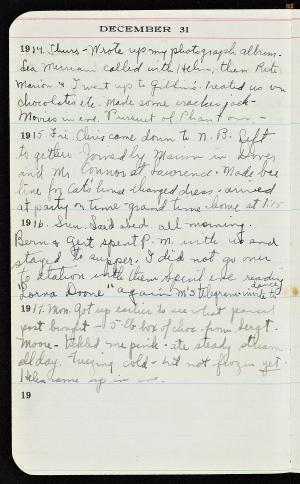 DECEMBER 31
1914. Thurs - Wrote up my photograph album.
Sea Merriam called with Helen, then Rita
Marion & I went up to Gibbins. treated us on
chocolates etc. Made some cracker jack -
Movies in eve. Pursuit of Phantom. -
1915. Fri. Chris came down to N. B. Left
together Joined by Marion in Dover
and Mr Connors at Lawrence. Made bee
line for Cat's home changed dress - arrived
at party on time - grand time. home at 1:15
1916. Sun. Said abed all morning.
Bern & Gert spent P.M. with us and
stayed to supper. I did not go over
to station with them Spent eve reading
"Lorna Doone" again M's telegram invite to
dance
1917. Mon. Got up earlier to see what parcel
post brought - 5-lb box of choc. from Sergt.
Moore - tickled me pink - ate steady stream
all day. Freezing cold - but not frozen yet.
Helen came up in eve.
19